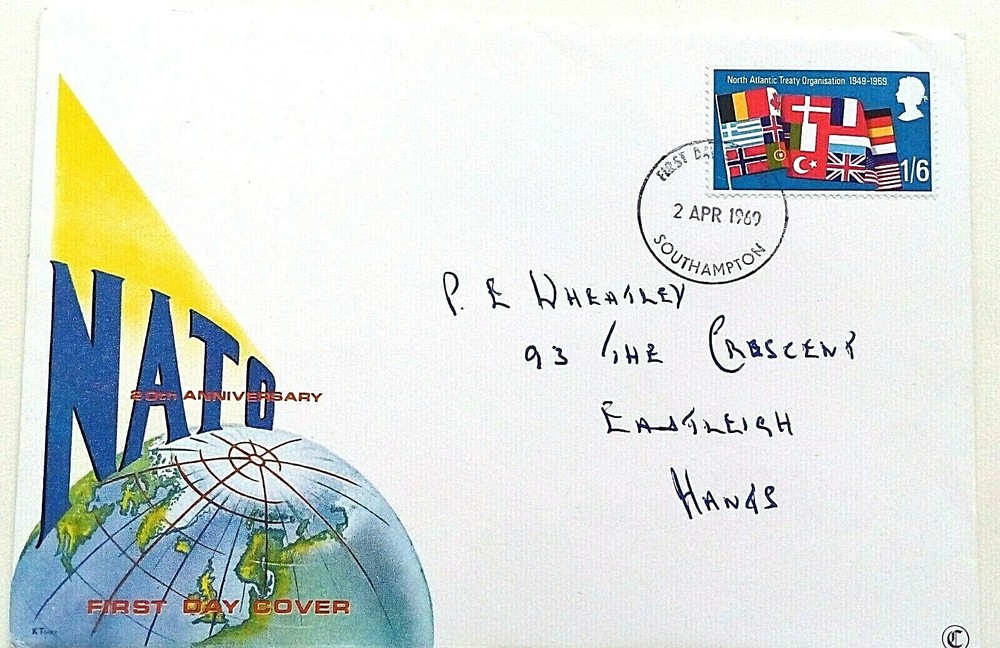 North Atlantic Treaty Organisation 1949-1969
1/6
FIRST DA
2 APR 1969
SOUTHAMPTON
P. E WHEATLEY
93 THE CRESCENT
EASTLEIGH
HANTS
NATO
20th ANNIVERSARY
FIRST DAY COVER
C